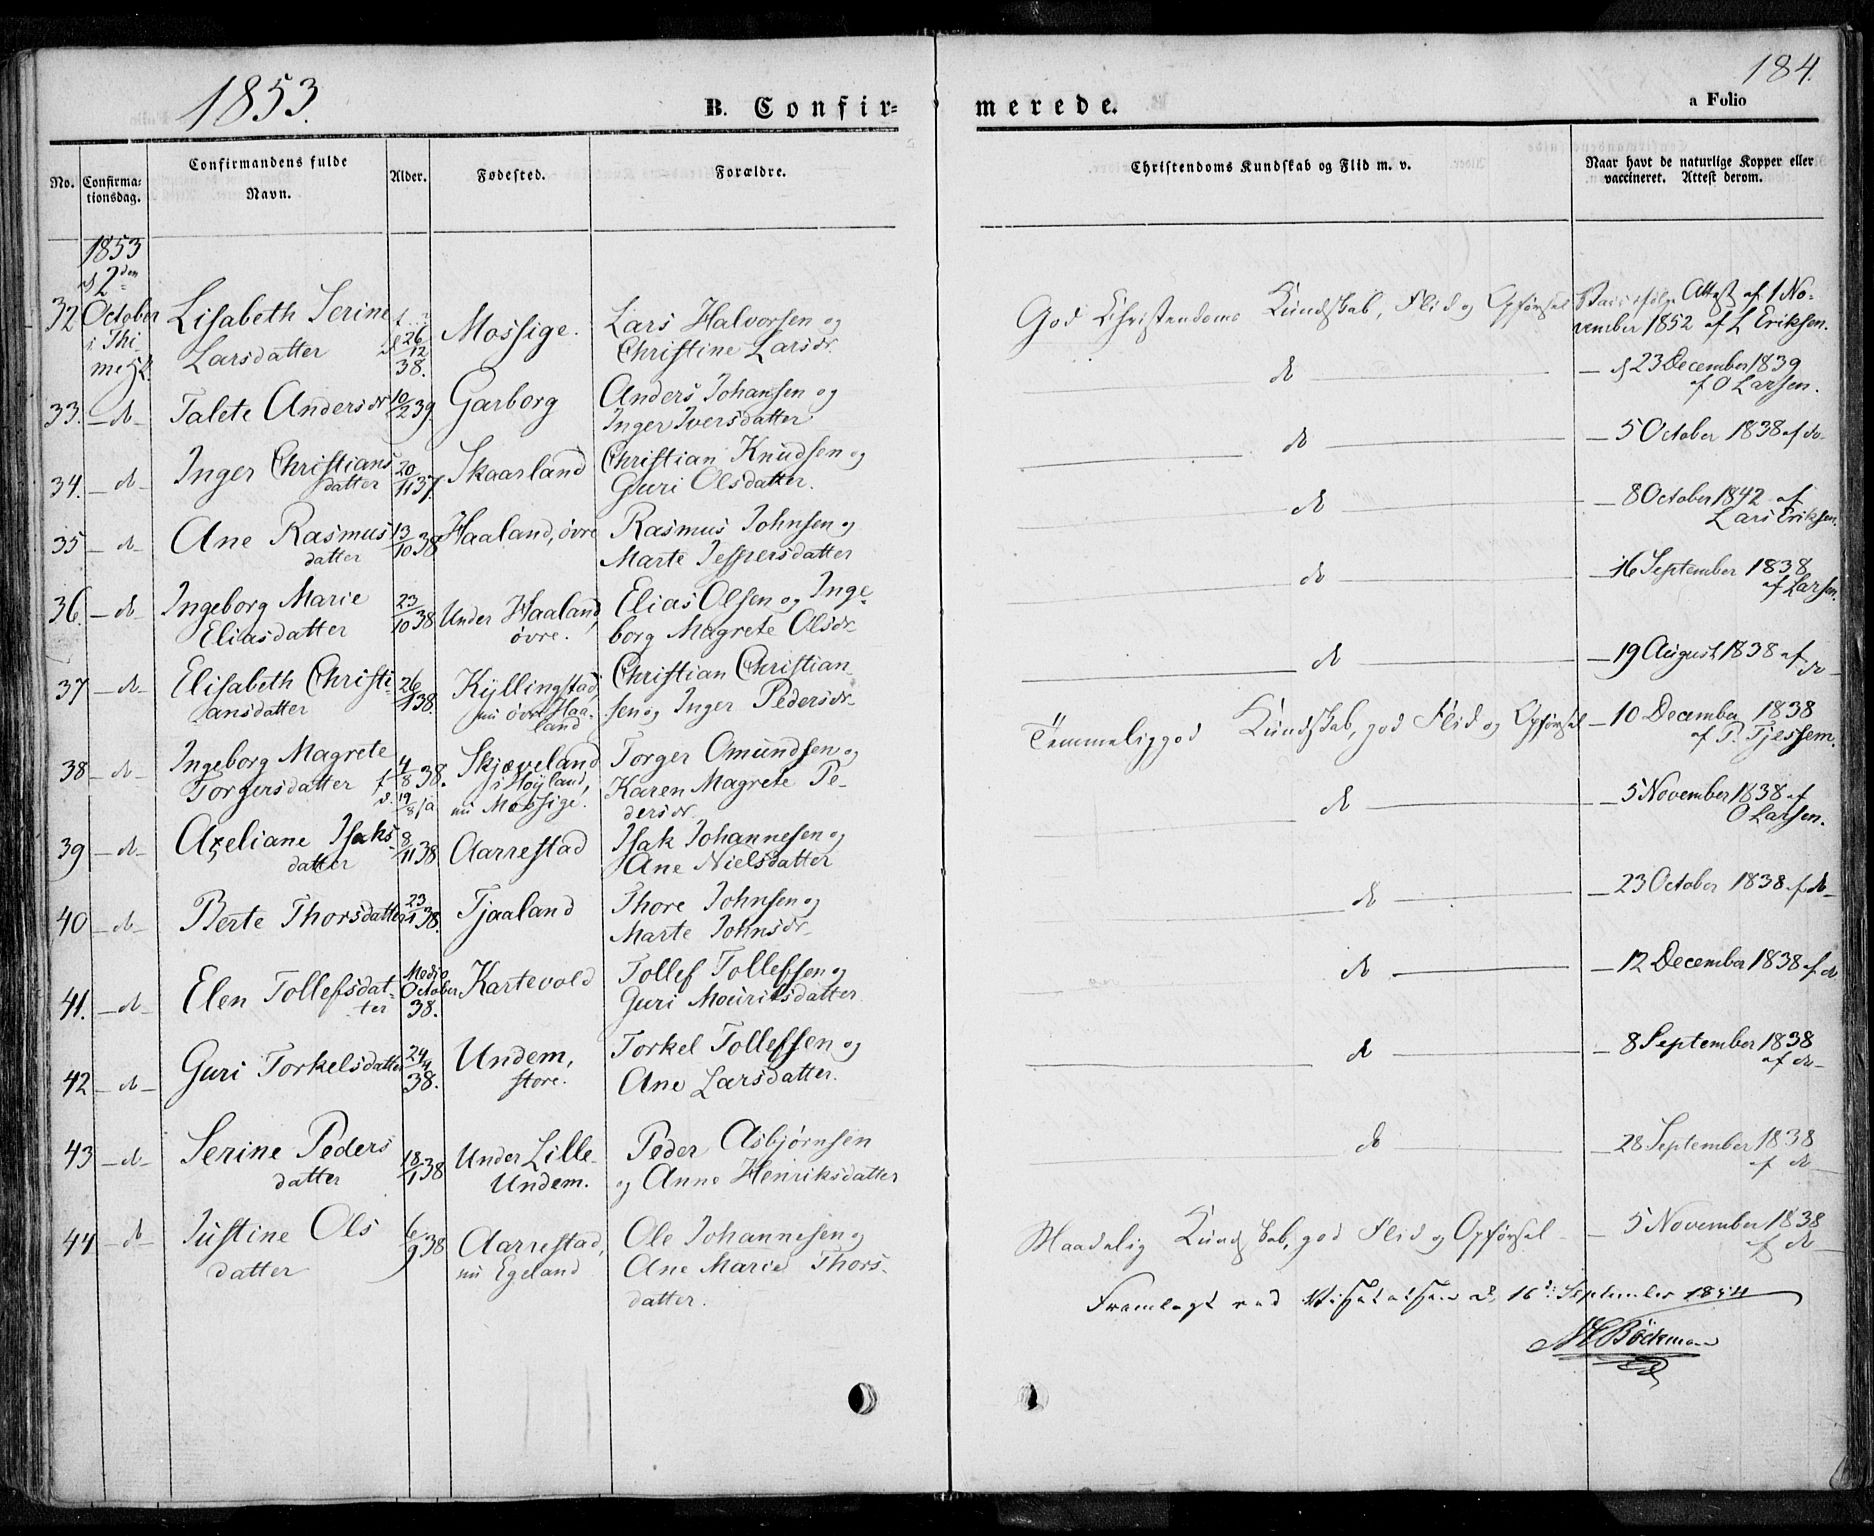 1853.
184.
B. Confir=
merede.
a Folio
No.
Confirma=
tionsdag.
Confirmandens fulde
Navn.
Alder.
Fødested.
Forældre.
Christendoms Kundskab og Flid m. v.
Naar havt de naturlige Kopper eller
vaccineret. Attest derom.
1853
d 2den
October
i Thi-
me
32
Lisabeth Serine
Larsdatter
26/12
38.
Mossige.
Lars Halvorsen og
Christine Larsdr.
God Christendoms Kundskab, Flid og Opførsel
Attest af 1 No-
vember 1852 af L Eriksen.
33. – do –
Talete Andersdr
10/2 39
Garborg
Anders Johansen og
Inger Iversdatter
do
– d 23 December 1839
af O Larsen.
34. – do –
Inger Christians
datter
20/11 37.
Skaarland
Christian Knudsen og
Guri Olsdatter.
do
– 5 October 1838 af do –
35 – do –
Ane Rasmus
datter
13/10 38
Haaland, övre
Rasmus Johnsen og
Marte Jespersdatter
do
– 8 October 1842 af
Lars Eriksen.
36. – do –
Ingeborg Marie
Eliasdatter
23/10 38
Under Haaland,
övre.
Elias Olsen og Inge-
borg Magrete Olsdr
do
– 16 September 1838
af Larsen.
37 – do –
Elisabeth Christi-
ansdatter
26/1 38.
Kyllingstad,
nu övre Haa-
land
Christian Christian
sen og Inger Pedersdr
do
– 19 August 1838 af
do –
38 – do –
Ingeborg Magrete
Torgersdatter
f 4/8 38.
d. 19/8 s a
Skjæveland
i Höyland,
nu Mossige.
Torger Omundsen og
Karen Magrete Pe-
dersdr.
Temmelig god Kundskab, god Flid og Opførsel
– 10 December 1838
af P. Tjessem.
39 – do –
Axeliane Isaks-
datter
8/11 38
Aarrestad
Isak Johannesen og
Ane Nielsdatter
do
– 5 November 1838 af
O Larsen.
40 – do –
Berte Thorsdatter
23/1 38.
Tjaaland
Thore Johnsen og
Marte Johnsdr
do
– 23 October 1838 af do –
41. – do –
Elen Tollefsdat-
ter
Medio
October
38.
Kartevold
Tollef Tollefsen og
Guri Mouritsdatter
do
– 12 December 1838 af do
42 – do –
Guri Torkelsdatter
24/4
38.
Undem,
store.
Torkel Tollefsen og
Ane Larsdatter.
do
– 8 September 1838
af do –
43 – do –
Serine Peders
datter
18/1 38
Under Lille-
Undem.
Peder Asbjørnsen
og Anne Henriksdatter
do
– 28 September 1838
af do –
44 – do –
Justine Ols
datter
6/9 38
Aarrestad,
nu Egeland
Ole Johannesen og
Ane Marie Thors-
datter.
Maadelig Kundskab, god Flid og Opførsel
– 5 November 1838
af do –
Fremlagt ved Visitatsen d. 16de September 1854
Böckman